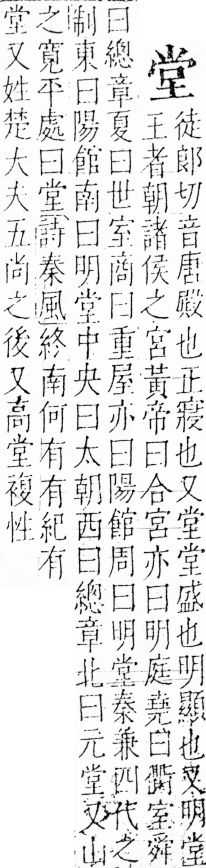 堂
徒郎切音唐殿也正寢也又堂堂盛也明顯也又明堂
王者朝諸侯之宮黃帝曰合宮亦曰明庭堯曰衢室舜
曰總章夏曰世室商曰重屋亦曰陽館周曰明堂秦兼四代之
制東曰陽館南曰明堂中央曰太朝西曰總章北曰元堂又山
之寬平處曰堂詩秦風終南何有有紀有
堂又姓楚大夫五尚之後又高堂複性